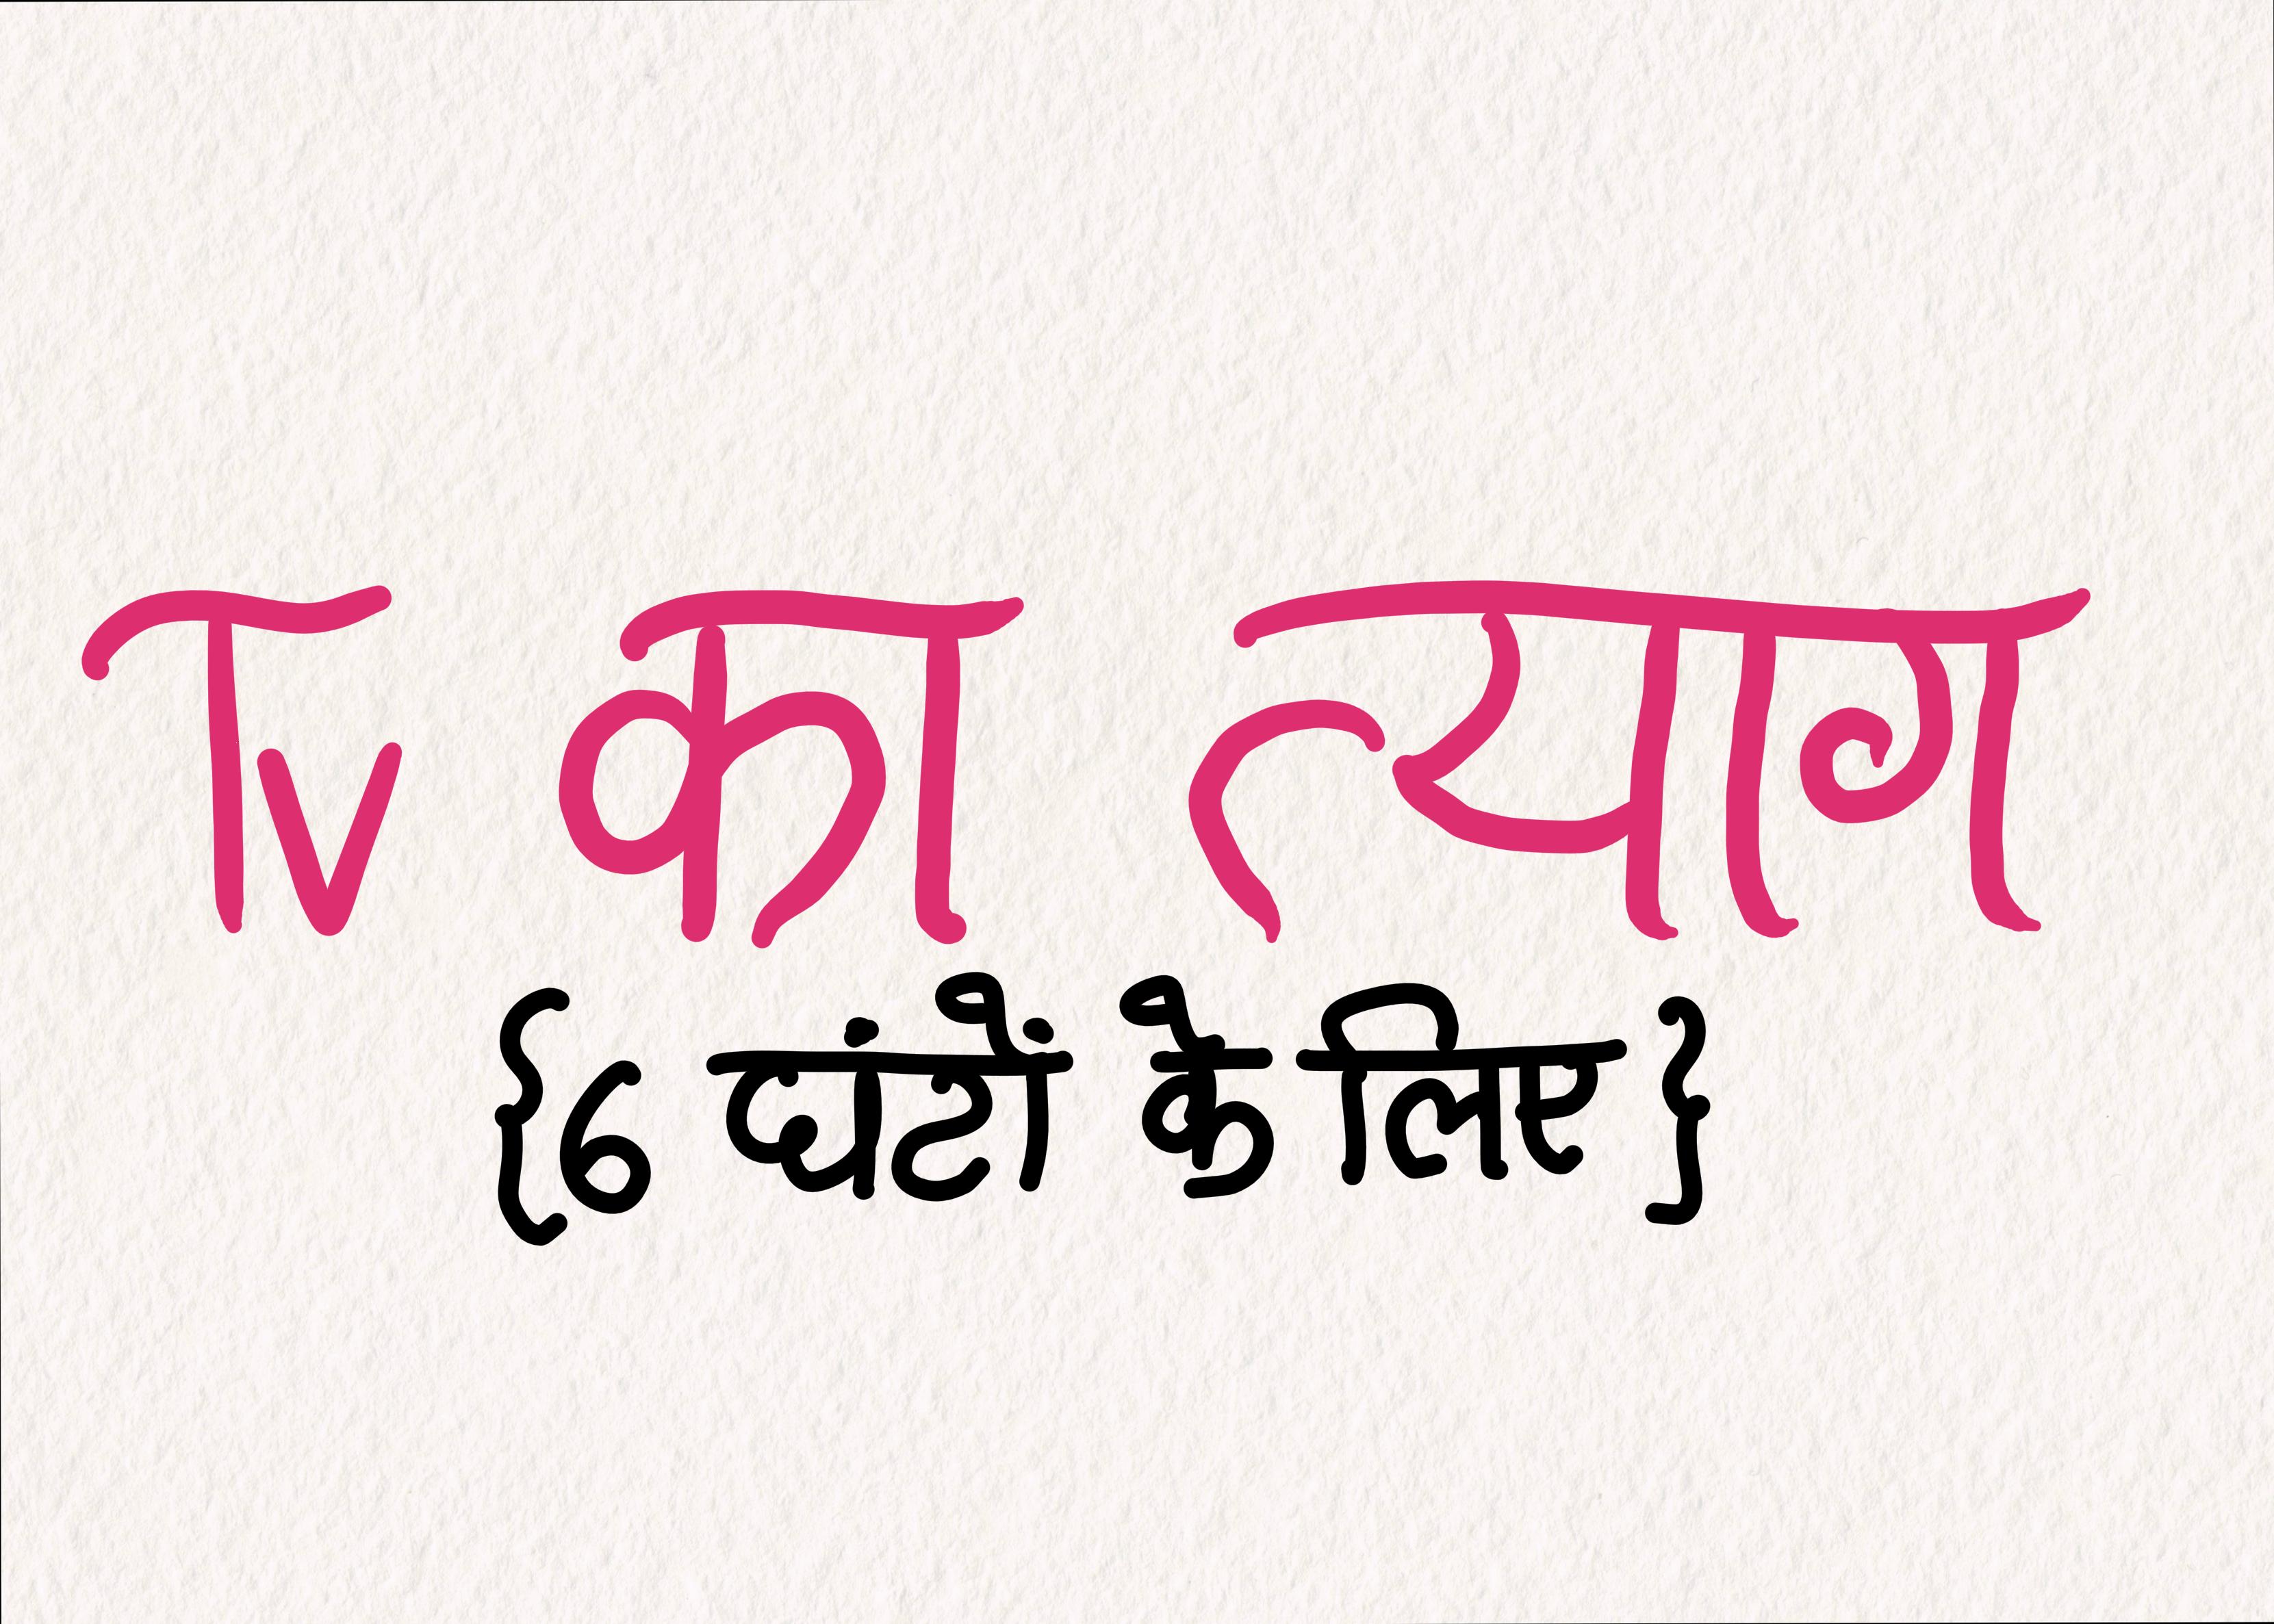 Tv का त्याग
{6 घंटों के लिए}